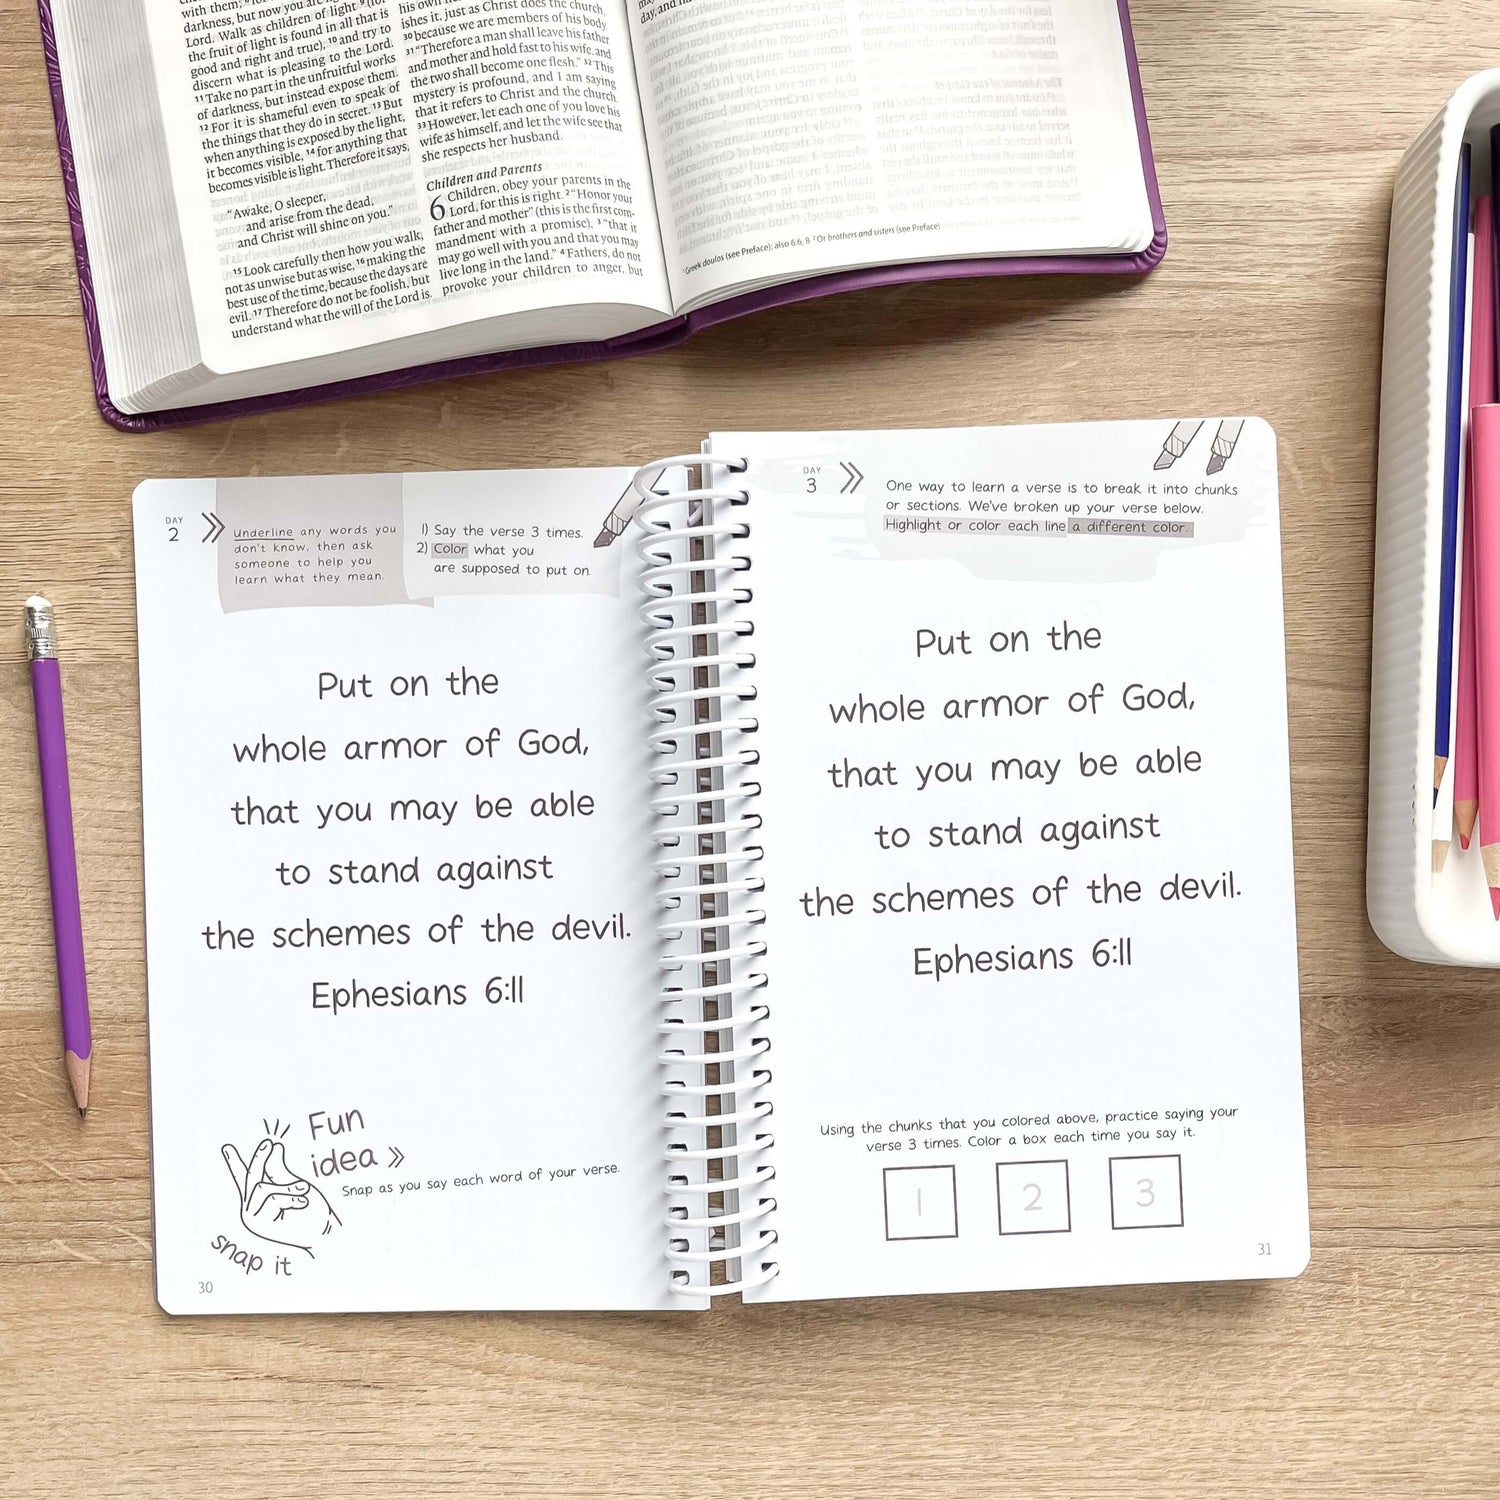 with them; 
darkness, but now you are light
Lord. Walk as children of light 9 (for
the fruit of light is found in all that is
good and right and true), 10 and try to
discern what is pleasing to the Lord.
11 Take no part in the unfruitful works
of darkness, but instead expose them.
12 For it is shameful even to speak of
the things that they do in secret. 13 But
when anything is exposed by the light,
it becomes visible, 14 for anything that
becomes visible is light. Therefore it says,
“Awake, O sleeper,
and arise from the dead,
and Christ will shine on you.”
15 Look carefully then how you walk,
not as unwise but as wise, 16 making the
best use of the time, because the days are
evil. 17 Therefore do not be foolish, but
understand what the will of the Lord is.
his own
ishes it, just as Christ does the church,
30 because we are members of his body.
31 “Therefore a man shall leave his father
and mother and hold fast to his wife, and
the two shall become one flesh.” 32 This
mystery is profound, and I am saying
that it refers to Christ and the church.
33 However, let each one of you love his
wife as himself, and let the wife see that
she respects her husband.
Children and Parents
6 Children, obey your parents in the
Lord, for this is right. 2 “Honor your
father and mother” (this is the first com-
mandment with a promise), 3 “that it
may go well with you and that you may
live long in the land.” 4 Fathers, do not
provoke your children to anger, but
day, and
1 Greek doulos (see Preface); also 6:6, 8 2 Or brothers and sisters (see Preface)
DAY
2
Underline any words you
don't know, then ask
someone to help you
learn what they mean.
1) Say the verse 3 times.
2) Color what you
are supposed to put on.
Put on the
whole armor of God,
that you may be able
to stand against
the schemes of the devil.
Ephesians 6:11
Fun
idea »
Snap as you say each word of your verse.
snap it
30
DAY
3
One way to learn a verse is to break it into chunks
or sections. We've broken up your verse below.
Highlight or color each line a different color.
Put on the
whole armor of God,
that you may be able
to stand against
the schemes of the devil.
Ephesians 6:11
Using the chunks that you colored above, practice saying your
verse 3 times. Color a box each time you say it.
1 2 3
31